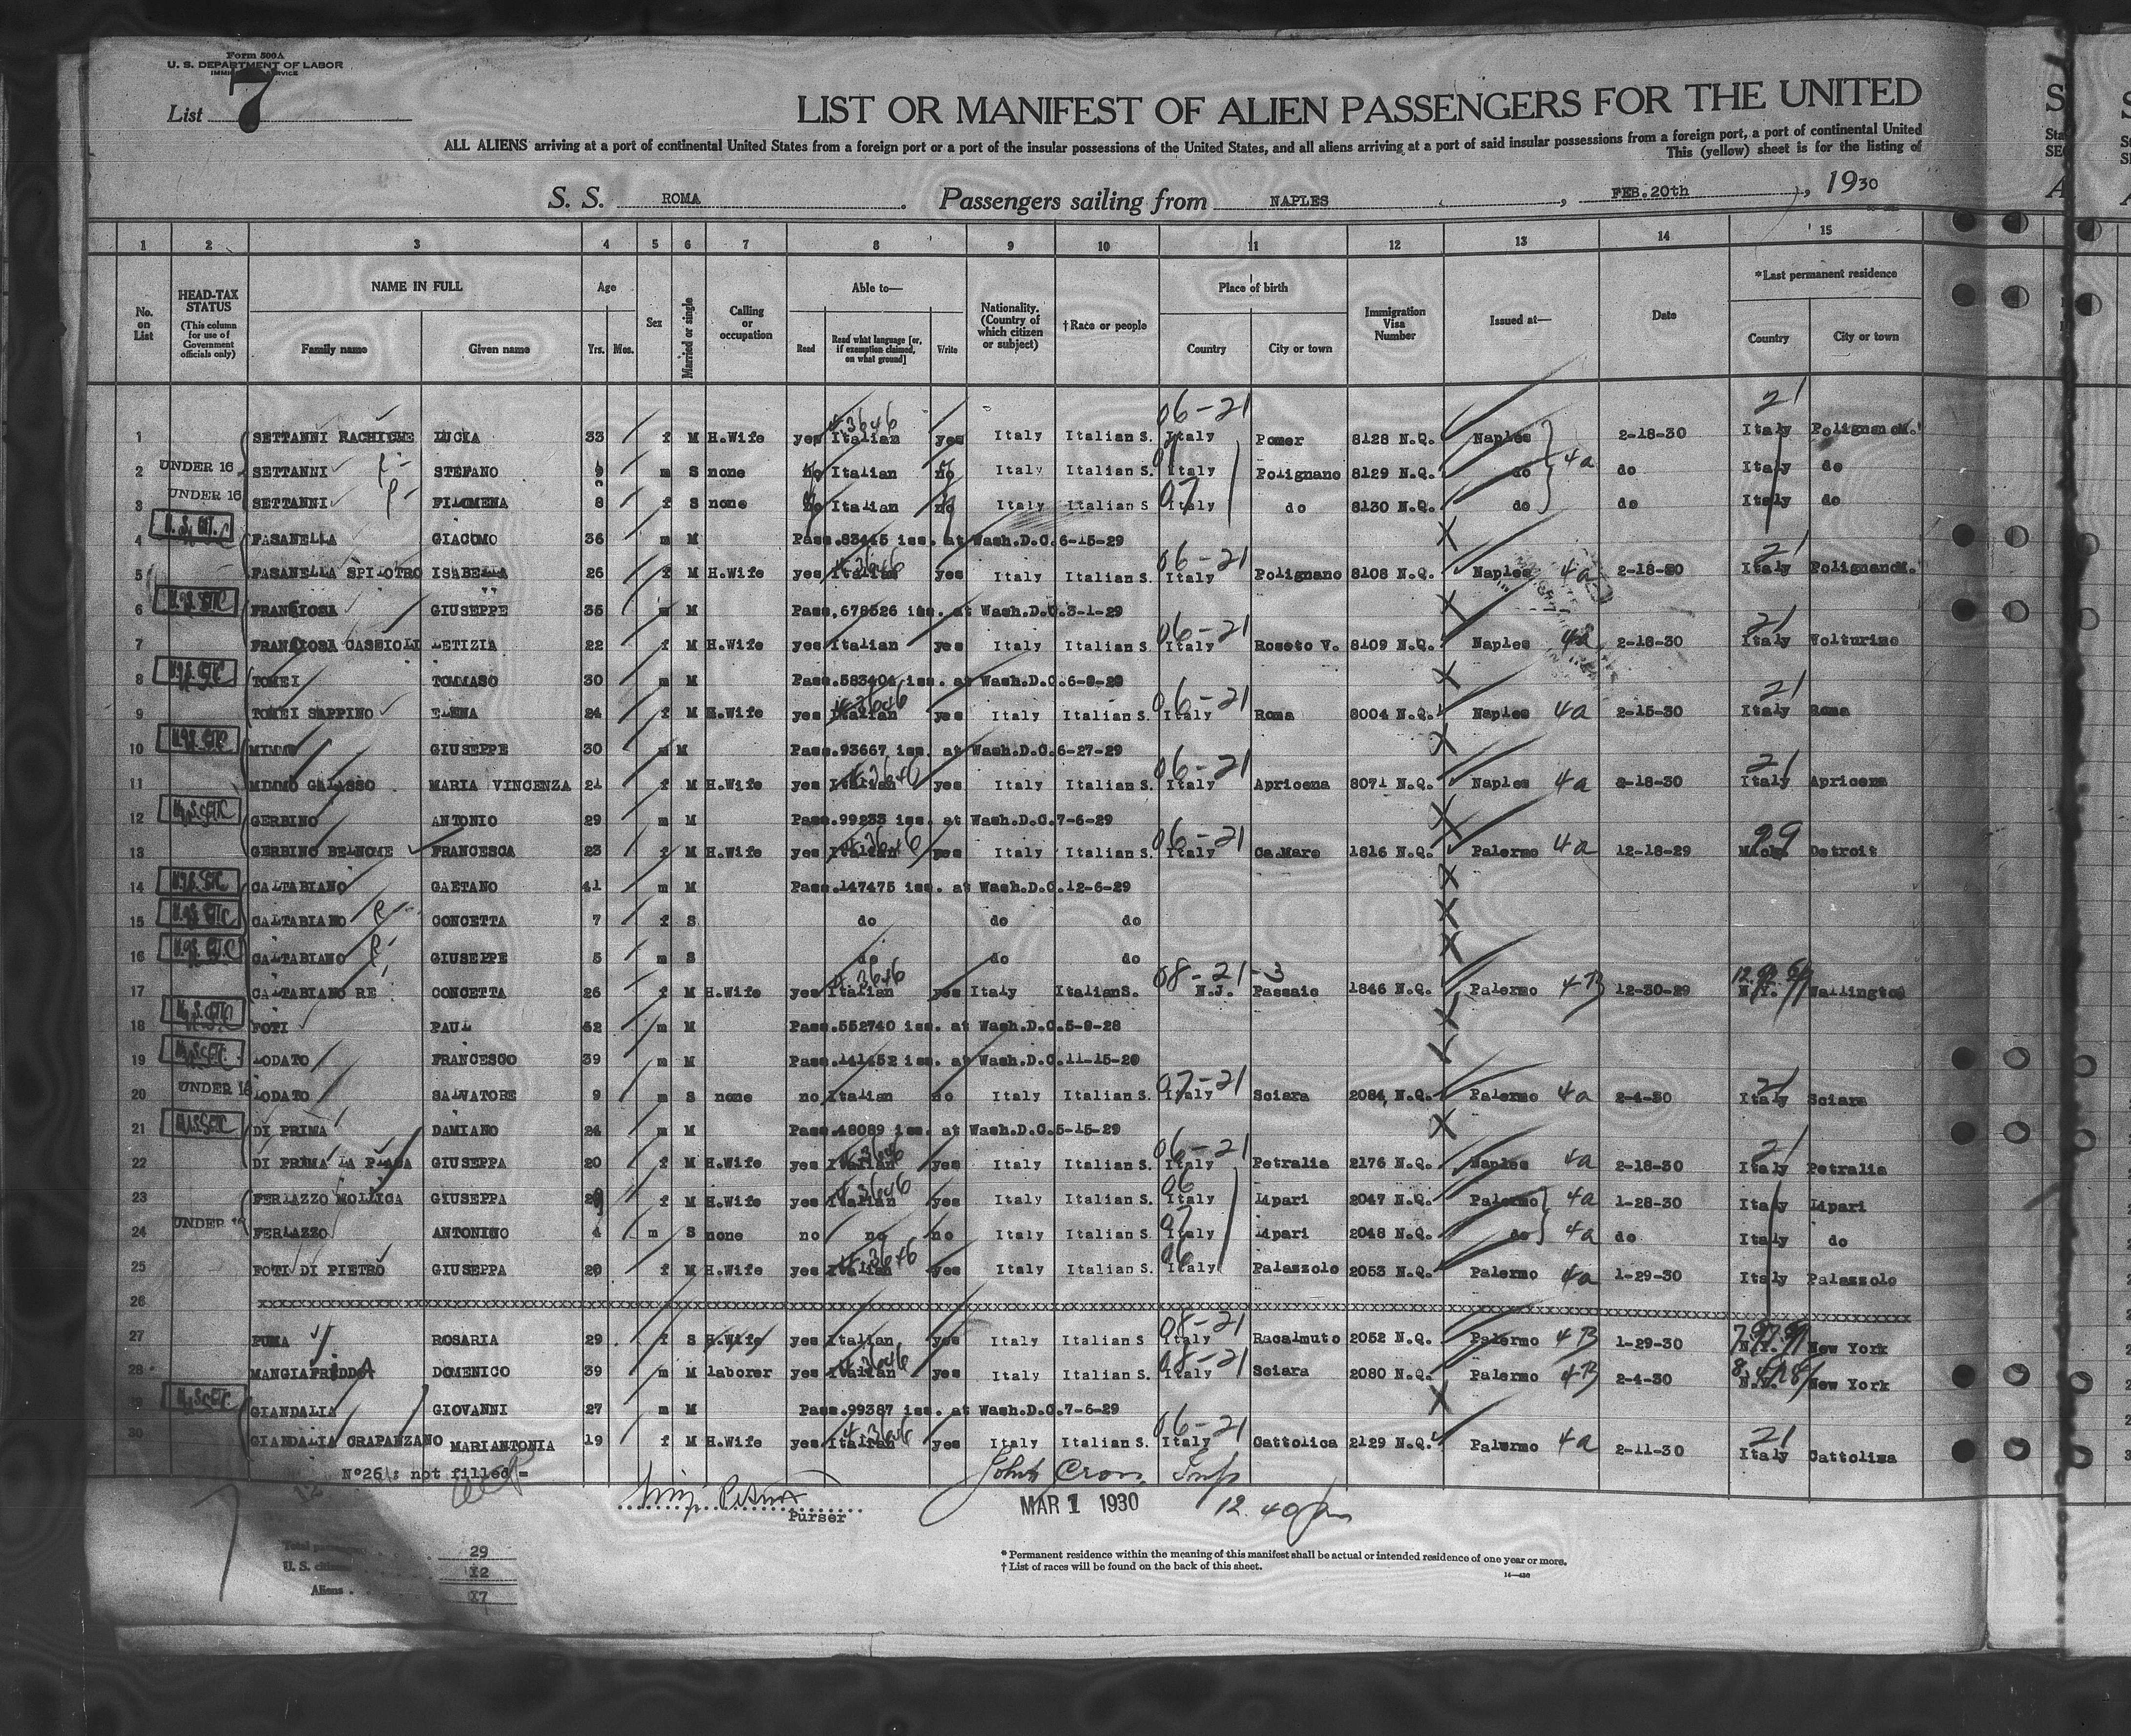 Form 500A
U. S. DEPARTMENT OF LABOR
List 7
LIST OR MANIFEST OF ALIEN PASSENGERS FOR THE UNITED
ALL ALIENS arriving at a port of continental United States from a foreign port or a port of the insular possessions of the United States, and all aliens arriving at a port of said insular possessions from a foreign port, a port of continental United
This (yellow) sheet is for the listing of
S. S. ROMA. Passengers sailing from NAPLES, FEB.20th, 1930
1 2 3 4 5 6 7 8 9 10 11 12 13 14 15
No. on List
HEAD-TAX STATUS (This column for use of Government officials only)
NAME IN FULL Family name Given name
Age Yrs. Mos.
Sex
Married or single
Calling or occupation
Able to— Read Read what language [or, if exemption claimed, on what ground] Write
Nationality. (Country of which citizen or subject)
†Race or people
Place of birth Country City or town
Immigration Visa Number
Issued at—
Date
*Last permanent residence Country City or town
06-21 21
1 SETTANNI RACHIELE LUCIA 33 f M H.Wife yes Italian yes Italy Italian S. Italy Pomer 8128 N.Q. Naples 2-18-30 Italy Polignano M.
2 UNDER 16 SETTANNI STEFANO 9 m S none no Italian no Italy Italian S. Italy Polignano 8129 N.Q. do 4a do Italy do
3 UNDER 16 SETTANNI FILOMENA 8 f S none no Italian no Italy Italian S Italy do 8130 N.Q. do do Italy do
4 U.S. CIT. FASANELLA GIACOMO 36 m M Pass.83445 iss. at Wash.D.C.6-15-29
06-21 21
5 FASANELLA SPILOTRO ISABELLA 26 f M H.Wife yes Italian yes Italy Italian S. Italy Polignano 8108 N.Q. Naples 4a 2-18-30 Italy Polignano M.
6 U.S. CIT. FRANCIOSA GIUSEPPE 35 m M Pass.678526 iss. at Wash.D.C.3-1-29
06-21 21
7 FRANCIOSA CASSIOLI LETIZIA 22 f M H.Wife yes Italian yes Italy Italian S. Italy Roseto V. 8109 N.Q. Naples 4a 2-18-30 Italy Volturino
8 U.S. CIT. TOMEI TOMMASO 30 m M Pass.583404 iss. at Wash.D.C.
06-21 21
9 TOMEI SAPPINO ELENA 24 f M H.Wife yes Italian yes Italy Italian S. Italy Roma 8004 N.Q. Naples 4a 2-15-30 Italy Roma
10 U.S. CIT. MIMMO GIUSEPPE 30 m M Pass.93667 iss. at Wash.D.C.6-27-29
06-21 21
11 MIMMO GALASSO MARIA VINCENZA 21 f M H.Wife yes Italian yes Italy Italian S. Italy Apricena 8071 N.Q. Naples 4a 2-18-30 Italy Apricena
12 U.S. CIT. GERBINO ANTONIO 29 m M Pass.99233 iss. at Wash.D.C.7-6-29
06-21 29
13 GERBINO BELNOME FRANCESCA 23 f M H.Wife yes Italian yes Italy Italian S. Italy Ca.Mare 1816 N.Q. Palermo 4a 12-18-29 Mich. Detroit
14 U.S. CIT. CALTABIANO GAETANO 41 m M Pass.147475 iss. at Wash.D.C.12-6-29
15 U.S. CIT. CALTABIANO CONCETTA 7 f S do do do
16 U.S. CIT. CALTABIANO GIUSEPPE 5 m S do do do
08-21-3
17 CALTABIANO RE CONCETTA 26 f M H.Wife yes Italian yes Italy Italian S. N.J. Passaic 1846 N.Q. Palermo 4B 12-30-29 Wallington
18 U.S. CIT. FOTI PAUL 52 m M Pass.552740 iss. at Wash.D.C.5-9-28
19 U.S. CIT. LODATO FRANCESCO 39 m M Pass.141452 iss. at Wash.D.C.
07-21 21
20 UNDER 16 LODATO SALVATORE 9 m S none no Italian no Italy Italian S. Italy Sciara 2084 N.Q. Palermo 4a 2-4-30 Italy Sciara
21 U.S. CIT. DI PRIMA DAMIANO 24 m M Pass.48089 iss. at Wash.D.C.5-15-29
06-21 21
22 DI PRIMA LA PLACA GIUSEPPA 20 f M H.Wife yes Italian yes Italy Italian S. Italy Petralia 2176 N.Q. Naples 4a 2-18-30 Italy Petralia
23 FERLAZZO MOLLICA GIUSEPPA f M H.Wife yes Italian yes Italy Italian S. Italy Lipari 2047 N.Q. Palermo 4a 1-28-30 Italy Lipari
24 UNDER FERLAZZO ANTONINO 4 m S none no no no Italy Italian S. Italy Lipari 2048 N.Q. do 4a do Italy do
25 FOTI DI PIETRO GIUSEPPA 20 f M H.Wife yes Italian yes Italy Italian S. Italy Palazzolo 2053 N.Q. Palermo 4a 1-29-30 Italy Palazzolo
26 xxxxxxxxxxxxxxxxxxxxxxxxxxxxxxxxxxxxxxxxxxxxxxxx
08-21
27 PUMA ROSARIA 29 f S H.Wife yes Italian yes Italy Italian S Italy Racalmuto 2052 N.Q. Palermo 4B 1-29-30 N.Y. New York
08-21
28 MANGIAFRIDDA DOMENICO 39 m M laborer yes Italian yes Italy Italian S. Italy Sciara 2080 N.Q. Palermo 4B 2-4-30 N.Y. New York
29 U.S. CIT. GIANDALIA GIOVANNI 27 m M Pass.99387 iss. at Wash.D.C.7-6-29
06-21 21
30 GIANDALIA CRAPANZANO MARIANTONIA 19 f M H.Wife yes Italian yes Italy Italian S. Italy Cattolica 2129 N.Q. Palermo 4a 2-11-30 Italy Cattolica
N°26 : not filled=
Purser
MAR 1 1930
12.40 pm
Total passengers 29
U. S. citizens 12
Aliens 17
* Permanent residence within the meaning of this manifest shall be actual or intended residence of one year or more.
† List of races will be found on the back of this sheet.